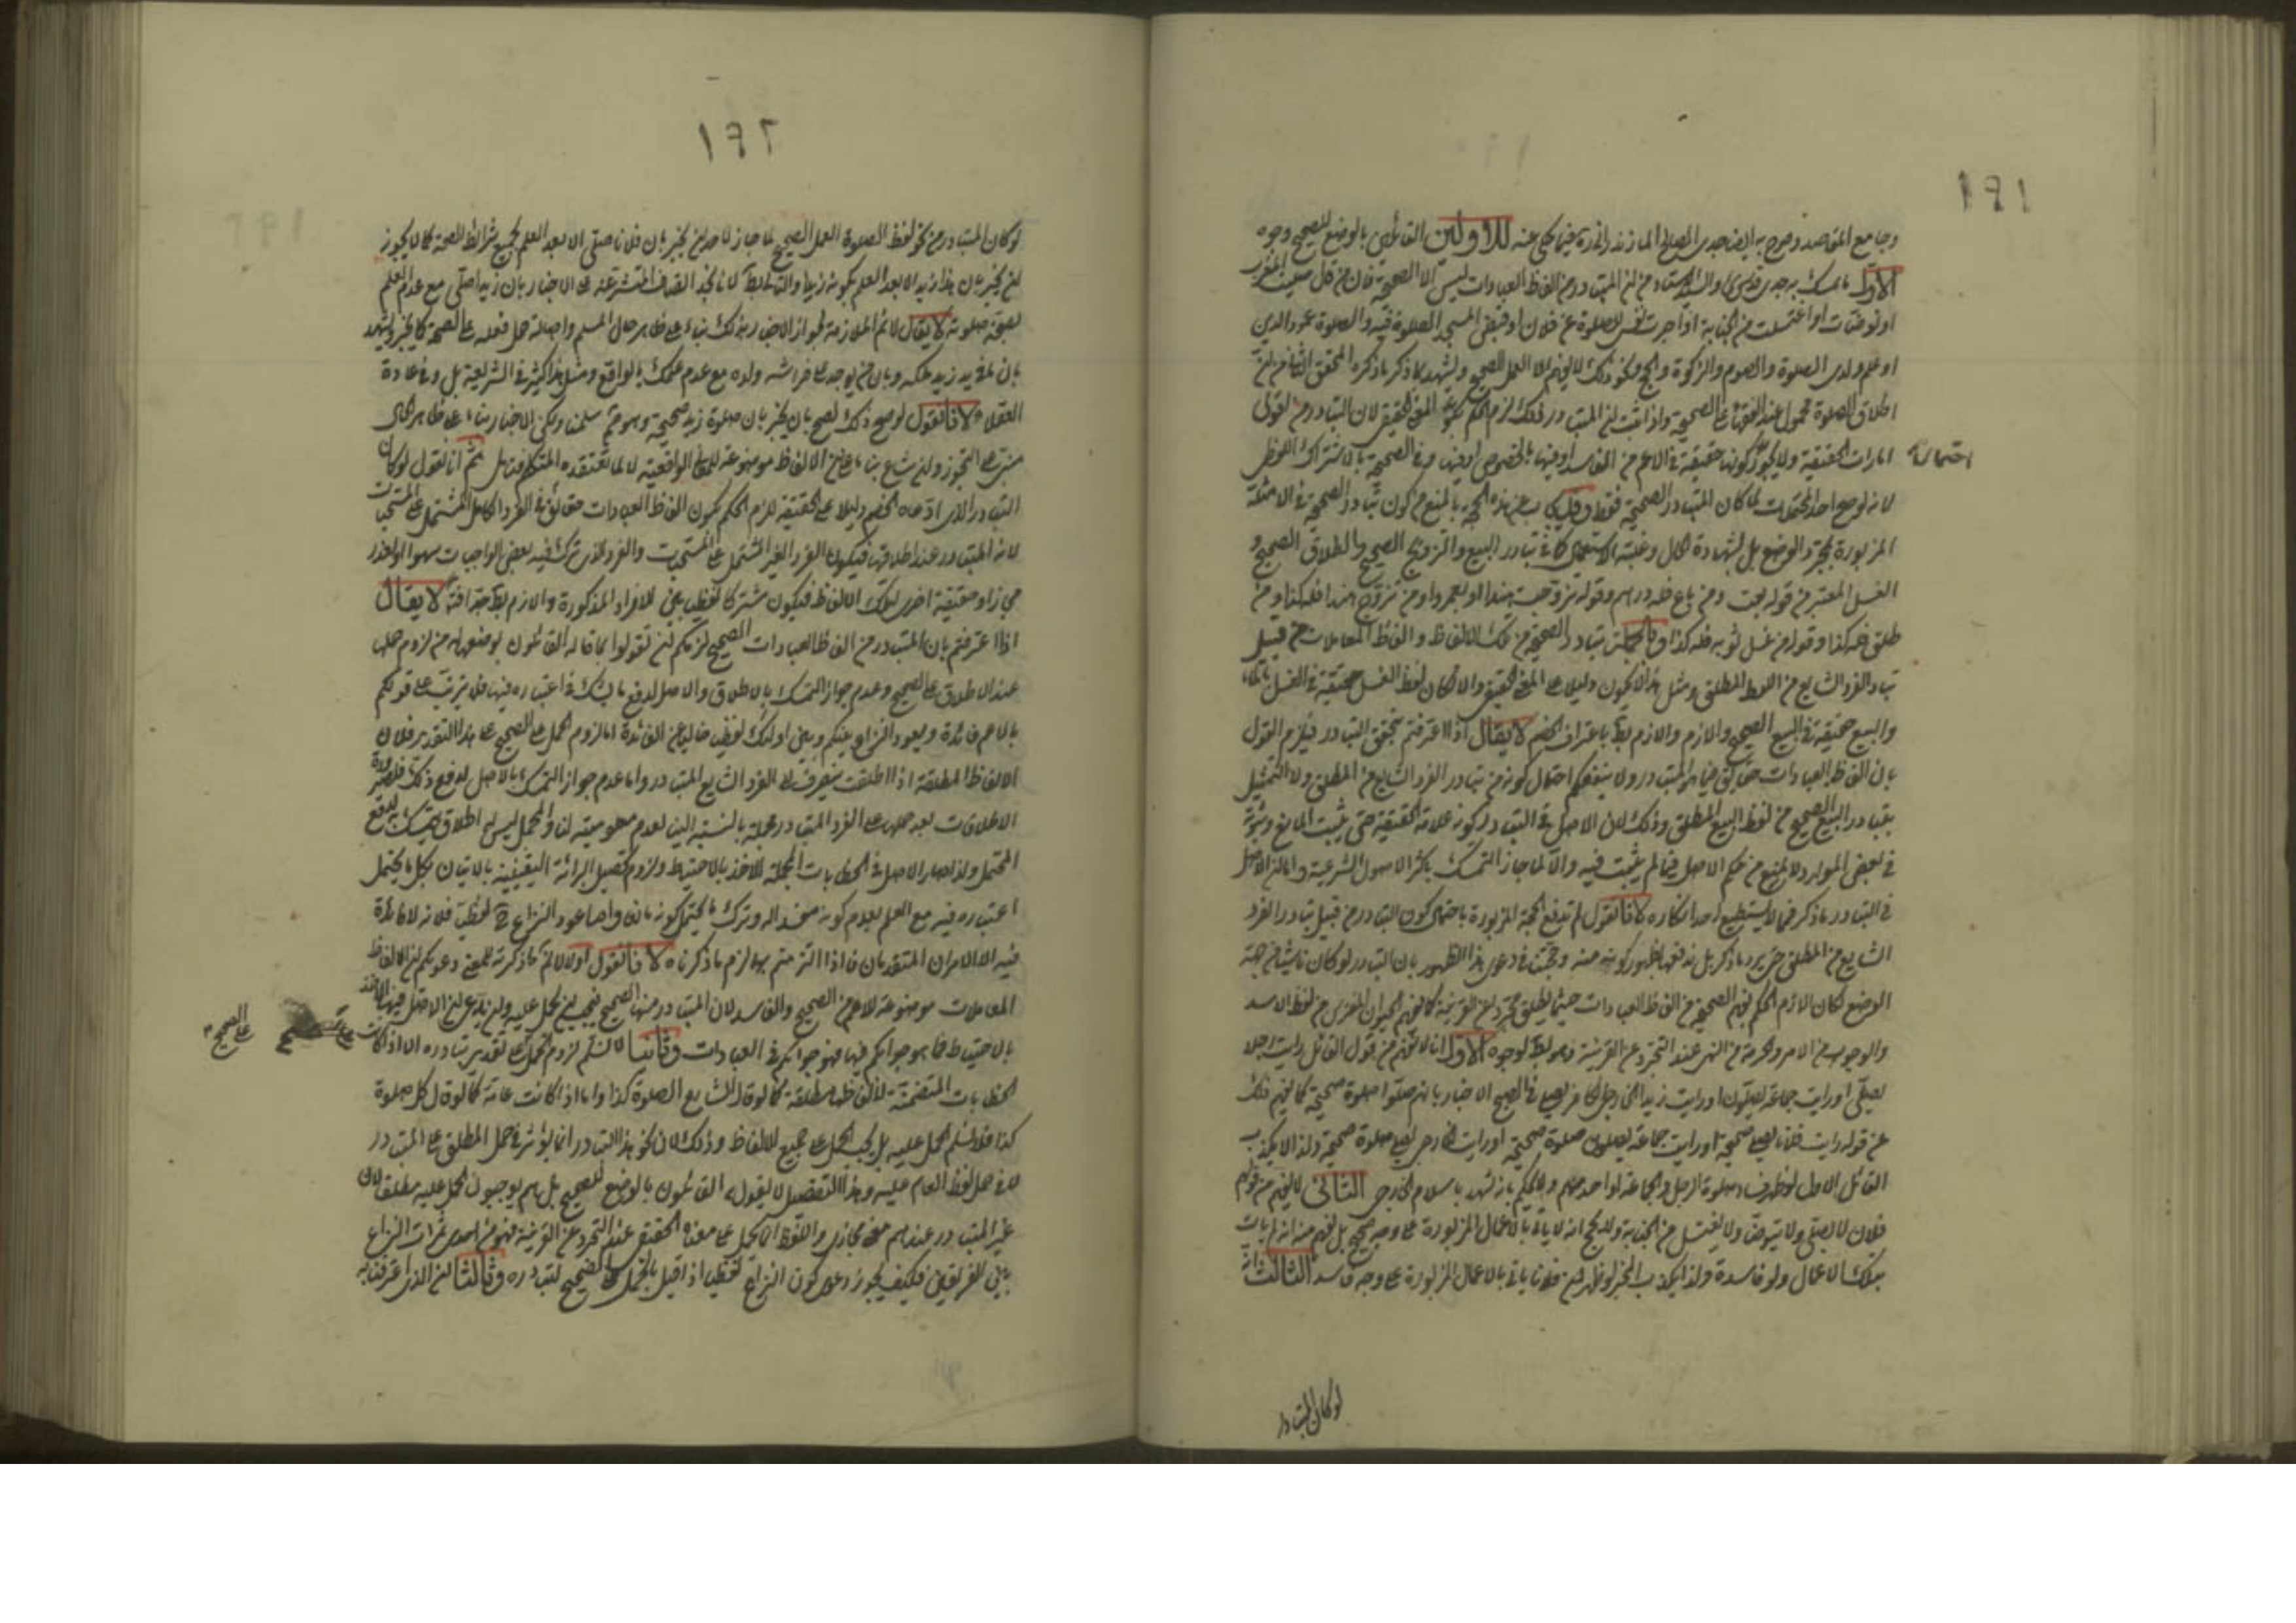 ١٩١
وجامع المقاصد وصرح به ايضا جدي الصالح المازندراني ره فيما حكي عنه للاولين القائلين بالوضع للصحيح وجوه
الاول ما تمسك به جدي قدس سره والسيد الاستاد من ان المتبادر من الفاظ العبادات ليس الا الصحيحة فان من قال صليت المغرب
او توضأت او اغتسلت من الجنابة او آجرت نفسي للصلوة عن فلان او قبض المسجد للصلوة فيه والصلوة عمود الدين
او علم ولدي الصلوة والصوم والزكوة والحج ونحو ذلك لا يفهم الا العمل الصحيح ويشهد لما ذكر ما ذكره المحقق الثاني من ان
اطلاق الصلوة محمول عند الفقهاء على الصحيحة واذا ثبت ان المتبادر ذلك لزم الحكم بكونه المعنى الحقيقي لان التبادر من اقوى
امارات الحقيقة ولا يجوز كونها حقيقة في الاعم من الفاسد او فيها بالخصوص او فيها وفي الصحيحة بالاشتراك اللفظي
لانه لو صح احد المحتملات لما كان المتبادر الصحيحة فقط وقد يجاب عن هذه الحجة بالمنع من كون تبادر الصحيحة في الامثلة
المزبورة بمجرد الوضع بل لشهادة الحال وغلبة الاستعمال كما في تبادر البيع والتزويج الصحيح والطلاق الصحيح و
الغسل المعتبر من قوله بعت ومن باع فله درهم وقوله تزوجت هندا او لعمرو او من تزوج هندا فله كذا ومن
طلق فله كذا وقوله من غسل ثوبه فله كذا وبالجملة تبادر الصحيحة من تلك الالفاظ والفاظ المعاملات من قبيل
تبادر الفرد الشايع من اللفظ المطلق ومثل هذا لا يكون دليلا على المعنى الحقيقي والا لكان لفظ الغسل حقيقة في الغسل بالماء
والبيع حقيقة في البيع الصحيح واللازم باطل باعتراف الخصم لا يقال اذا اعترفتم بتحقق التبادر فيلزم القول
بان الفاظ العبادات حقايق فيما هو المتبادر ولا ينفعكم احتمال كونه من تبادر الفرد الشايع من المطلق ولا التمثيل
بتبادر البيع الصحيح من لفظ البيع المطلق وذلك لان الاصل في التبادر كونه علامة الحقيقة حتى يثبت المانع وثبوته
في بعض الموارد لا يمنع من حكم الاصل فيما لم يثبت فيه والا لما جاز التمسك باكثر الاصول الشرعية واما ان الاصل
في التبادر ما ذكر فما لا يستطيع احد انكاره لانا نقول لم ندفع الحجة المزبورة باحتمال كون التبادر من قبيل تبادر الفرد
الشايع من المطلق حتى يرد ما ذكر بل ندفعها بظهور كونه منه وحجتنا في دعوى هذا الظهور بان التبادر لو كان ناشيا من جهة
الوضع لكان اللازم الحكم بفهم الصحيحة من الفاظ العبادات حيثما يطلق مجردا عن القرينة كما نفهم الحيوان المفترس من لفظ الاسد
والوجوب من الامر والحرمة من النهي عند التجرد عن القرينة وهو باطل لوجوه الاول انا لا نفهم من قول القائل رايت رجلا
يصلي او رايت جماعة يصلون او رايت زيدا الخارجي الكافر يصلي في الصبح الاخبار بانهم صلوا صلوة صحيحة كما نفهم ذلك
من قوله رايت فلانا يصلي صحيحة او رايت جماعة يصلون صلوة صحيحة او رايت الخارجي يصلي صلوة صحيحة ولذا لا يكذب
القائل الاول لو ظهر فساد صلوة الرجل والجماعة او احد منهم ولا يحكم بانه شهد باسلام الخارجي الثاني لا نفهم من قولهم
فلان لا يصلي ولا يتوضأ ولا يغتسل من الجنابة ولا يحج انه لا ياتي بالاعمال المزبورة على وجه صحيح بل نفهم منه انه لم يات
بتلك الاعمال ولو فاسدة ولذا يكذب المخبر لو ظهر ان فلانا ياتي بالاعمال المزبورة على وجه فاسد الثالث انه
لو كان المتبادر
١٩٢
لو كان المتبادر من نحو لفظ الصلوة العمل الصحيح لما جاز لاحد ان يخبر بان فلانا صلى الا بعد العلم بجميع شرائط الصحة كما لا يجوز
ان يخبر بان هذا زيد الا بعد العلم بكونه زيدا والتالي باطل لانا نجد القطع المتشرعة في الاخبار بان زيدا صلى مع عدم العلم
بصحة صلوته لا يقال لا نم الملازمة لجواز الاخبار بذلك بناء على ظاهر حال المسلم واصالة حمل فعله على الصحة كما يخبر ويشهد
بان ما في يد زيد ملكه وبان من يوجد على فراشه ولده مع عدم علمك بالواقع ومثل هذا كثير في الشريعة بل وفي عادة
العقلاء لانا نقول لو صح ذلك لصح بان يخبر بان صلوة زيد صحيحة وهو مم سلمنا ولكن الاخبار بناء على ظاهر الحال
مبني على التجوز ولذا شاع بناء على ان الالفاظ موضوعة للمعاني الواقعية لا لما يعتقده المتكلم فتامل ثم انا نقول لو كان
التبادر الذي ادعاه الخصم دليلا على الحقيقة للزم الحكم بكون الفاظ العبادات حقائق في الفرد الكامل المشتمل على المستحبات
لانه المتبادر عند اطلاقها فيكون الفرد الغير المشتمل على المستحبات والفرد الذي ترك فيه بعض الواجبات سهوا او لعذر
مجازا او حقيقة اخرى لتلك الالفاظ فيكون مشتركا لفظيا بين الافراد المذكورة واللازم باطل جدا فتم لا يقال
اذا اعترفتم بان المتبادر من الفاظ العبادات الصحيح لزمكم ان تقولوا بما قاله القائلون بوضعها له من لزوم حملها
عند الاطلاق على الصحيح وعدم جواز التمسك بالاطلاق والاصل لدفع ما يشك في اعتباره فيها فلا يترتب على قولكم
بالاعم فائدة ويعود النزاع بينكم وبين اولئك لفظيا خاليا عن الفائدة اما لزوم الحمل على الصحيح على هذا التقدير فلان
الالفاظ المطلقة اذا اطلقت ينصرف الى الفرد الشايع المتبادر واما عدم جواز التمسك بالاصل لدفع ذلك فلصيرورة
الاطلاقات بعد حملها على الفرد المتبادر مجملة بالنسبة الينا لعدم معلوميته لنا والمجمل ليس له اطلاق يتمسك به لدفع
المحتمل ولذا صار الاصل في الخطابات المجملة الاخذ بالاحتياط ولزوم تحصيل البرائة اليقينية بالاتيان بكل ما يحتمل
اعتباره فيه مع العلم بعدم كونه مفسدا له وترك ما يحتمل كونه مانعا واما عود النزاع ح لفظيا فلانه لا فائدة
فيه الا الامران المتقدمان فاذا التزمتم بهما لزم ما ذكرناه لانا نقول اولا لا نم ما ذكرته لمنع دعويكم ان الالفاظ
المعاملات موضوعة للاعم من الصحيح والفاسد لان المتبادر منها الصحيح فيجب ان يحمل عليه ولم ندع ان الاصل فيها الاخذ
بالاحتياط فما هو جوابكم فيها فهو جوابكم في العبادات وثانيا لا نسلم لزوم الحمل على تقدير تبادره الا اذا كانت على الصحيح
الخطابات المتضمنة لالفاظها مطلقة كما لو قال الشارع الصلوة كذا واما اذا كانت عامة كما لو قال كل صلوة
كذا فلا نسلم الحمل عليه بل يجب الحمل على جميع الالفاظ وذلك لان نحو هذا التبادر انما يؤثر في حمل المطلق على المتبادر
لا في حمل لفظ العام عليه وهذا التفصيل لا يقول به القائلون بالوضع للصحيح بل هم يوجبون الحمل عليه مطلقا لان
غير المتبادر عندهم معنى مجازي واللفظ انما يحمل على معناه الحقيقي عند التجرد عن القرينة فهو من احدى ثمرات النزاع
بين الفريقين فكيف يجوز دعوى كون النزاع لفظيا اذا قيل بالحمل على الصحيح لتبادره وثالثا ان الذي اعترفنا به